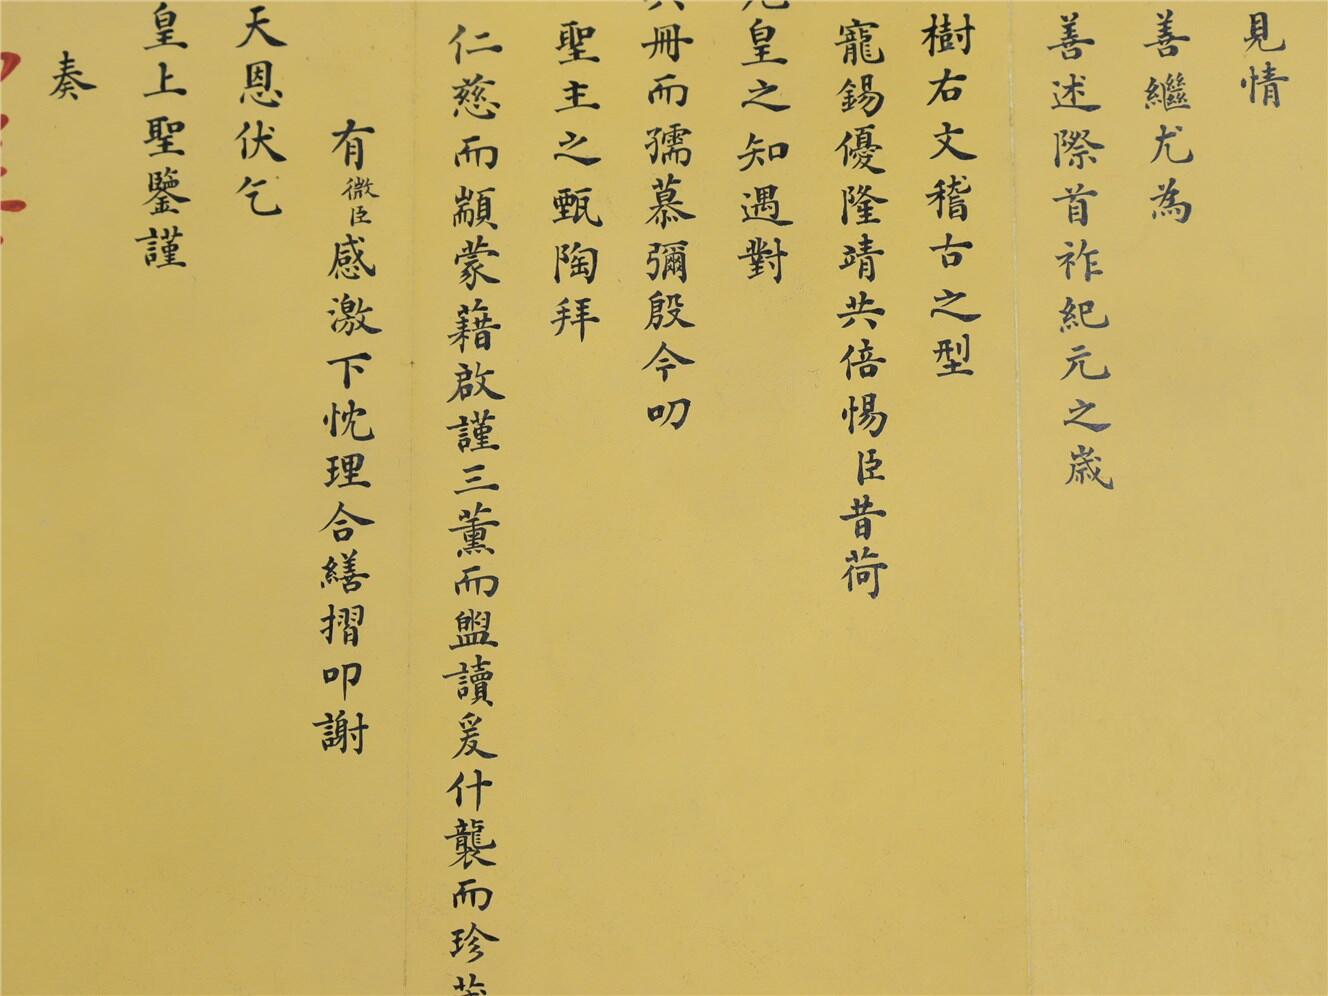 見情
善繼尤為
善述際首祚紀元之歲
樹右文稽古之型
寵錫優隆靖共倍惕臣昔荷
皇之知遇對
冊而孺慕彌殷今叨
聖主之甄陶拜
仁慈而顓蒙藉啟謹三薰而盥讀爰什襲而珍
有微臣感激下忱理合繕摺叩謝
天恩伏乞
皇上聖鑒謹
奏